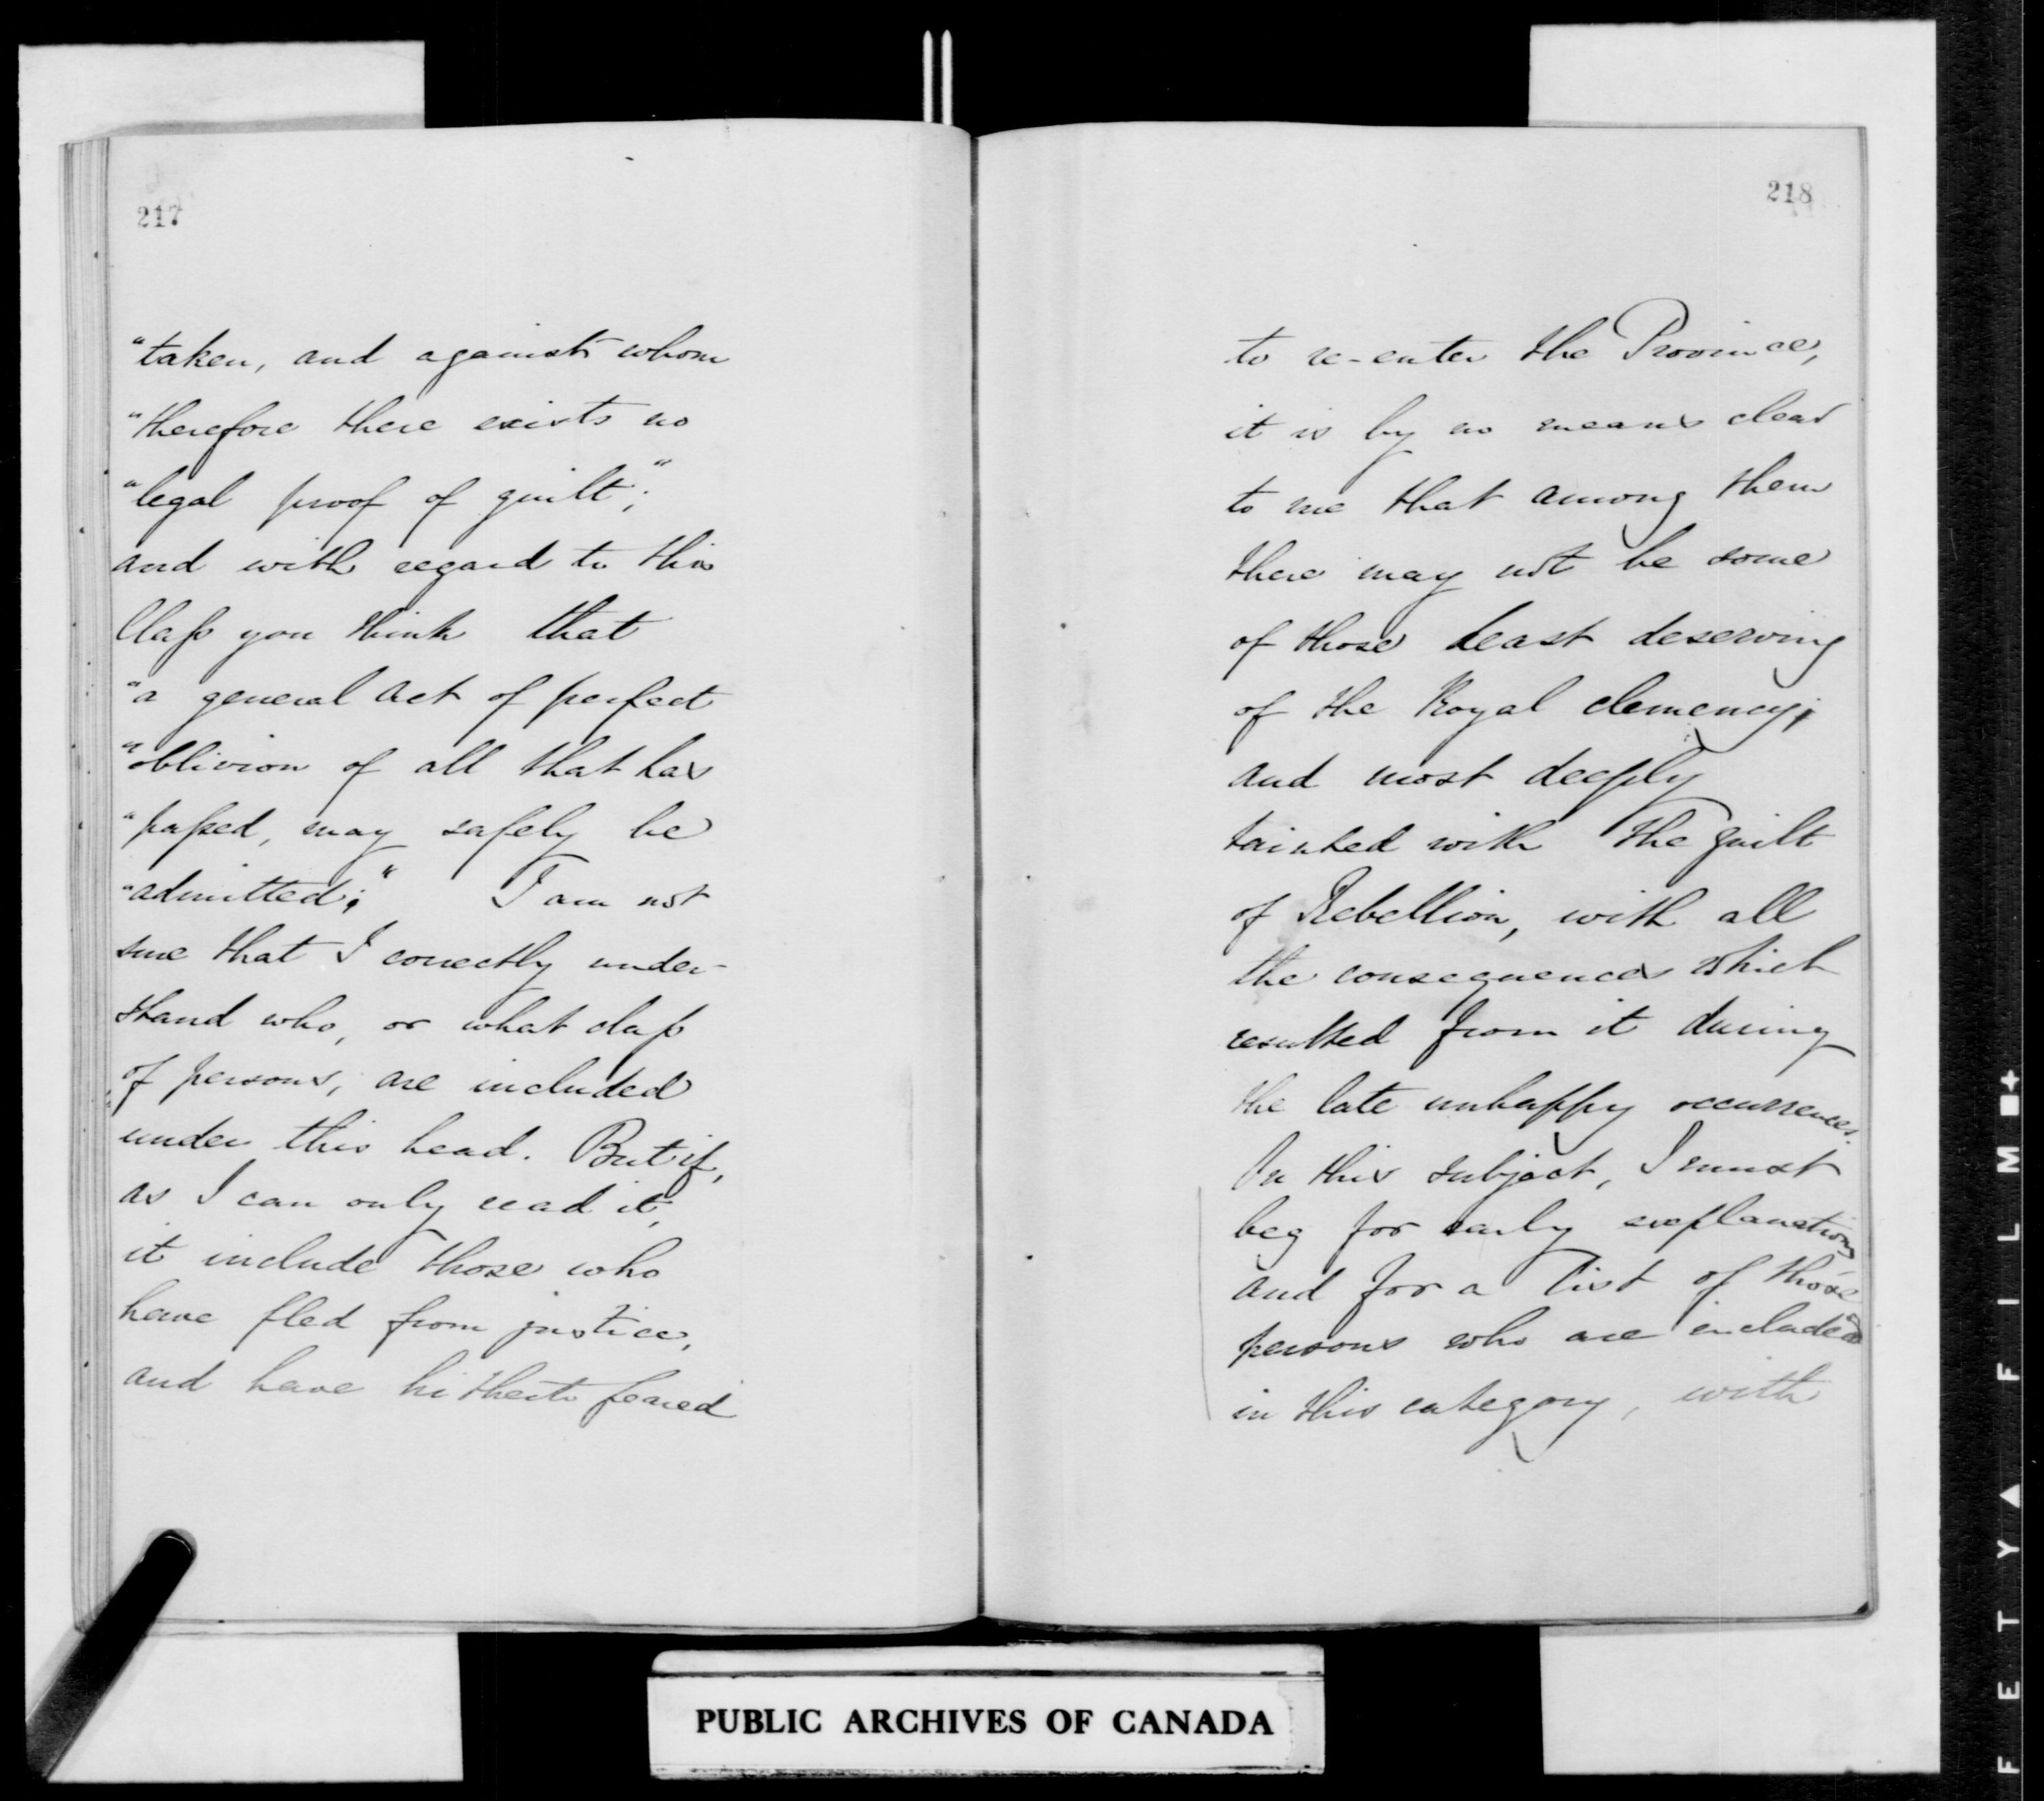 217
"taken, and against whom
"therefore there exists no
"legal proof of guilt;"
and with regard to this
Class you think that
"a general Act of perfect
"oblivion of all that has
"passed, may safely be
"admitted;" I am not
sure that I correctly under-
stand who, or what class
of persons, are included
under this head. But if,
as I can only read it,
it include those who
have fled from justice,
and have hitherto feared
218
to re-enter the Province,
it is by no means clear
to me that among them
there may not be some
of those least deserving
of the Royal clemency;
and most deeply
tainted with the guilt
of Rebellion, with all
the consequences which
resulted from it during
the late unhappy occurrences.
On this subject, I must
beg for early explanations
and for a list of those
persons who are included
in this category, with
PUBLIC ARCHIVES OF CANADA
FETY FILM